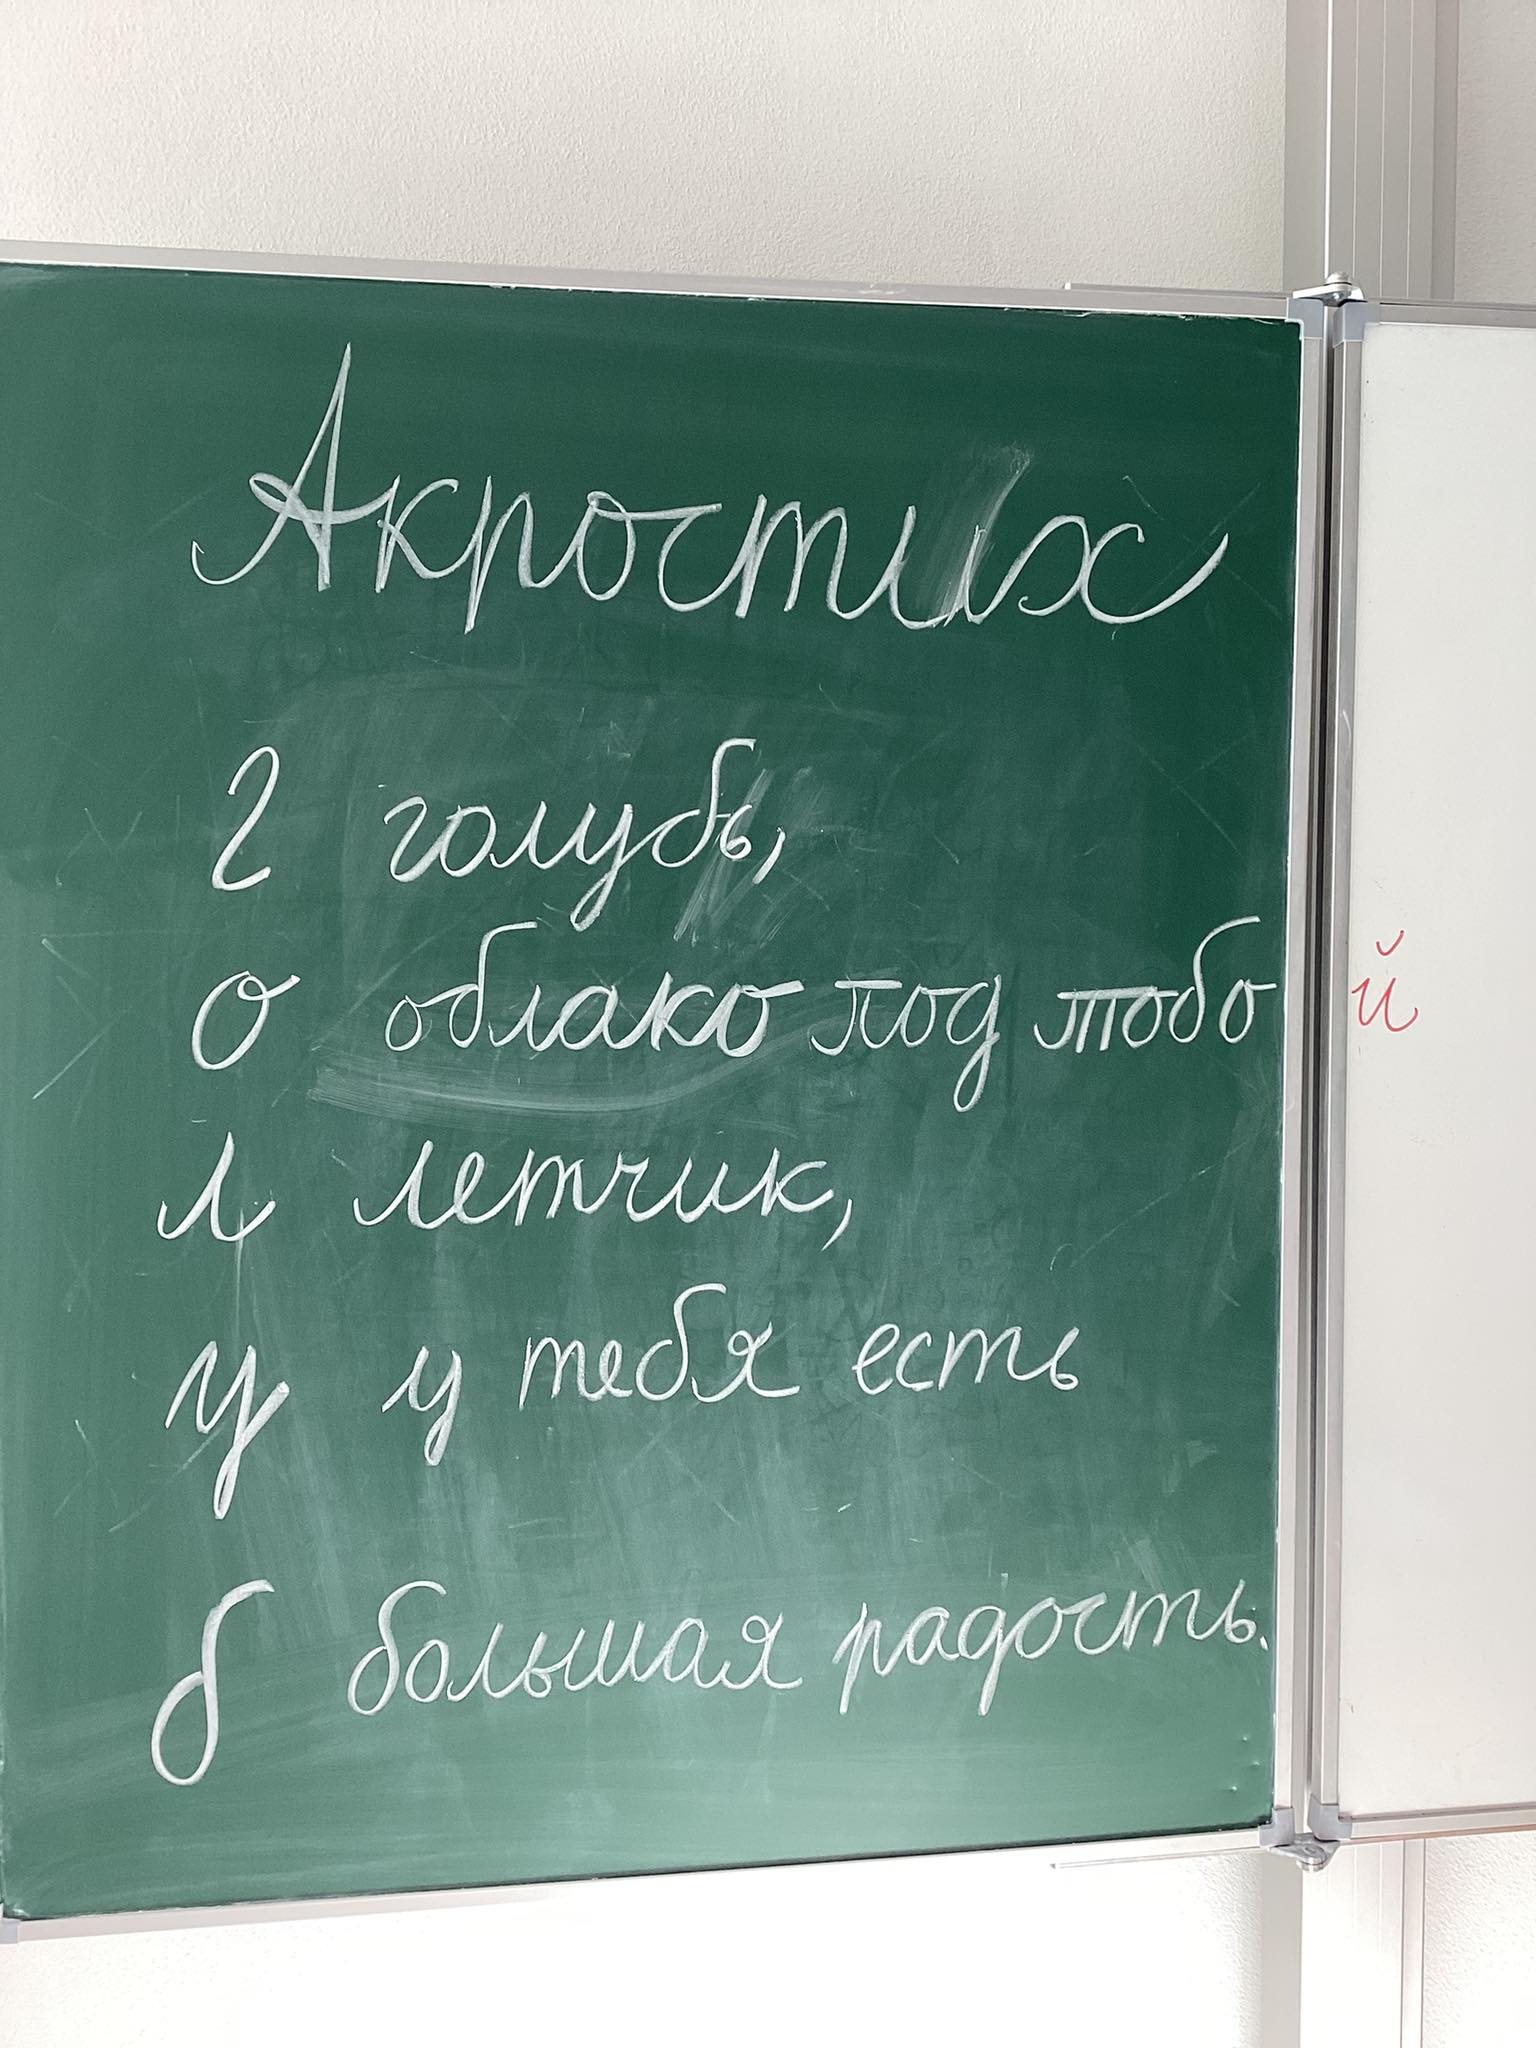 Акростих
г голубь,
о облако под тобой
л летчик,
у у тебя есть
б большая радость.